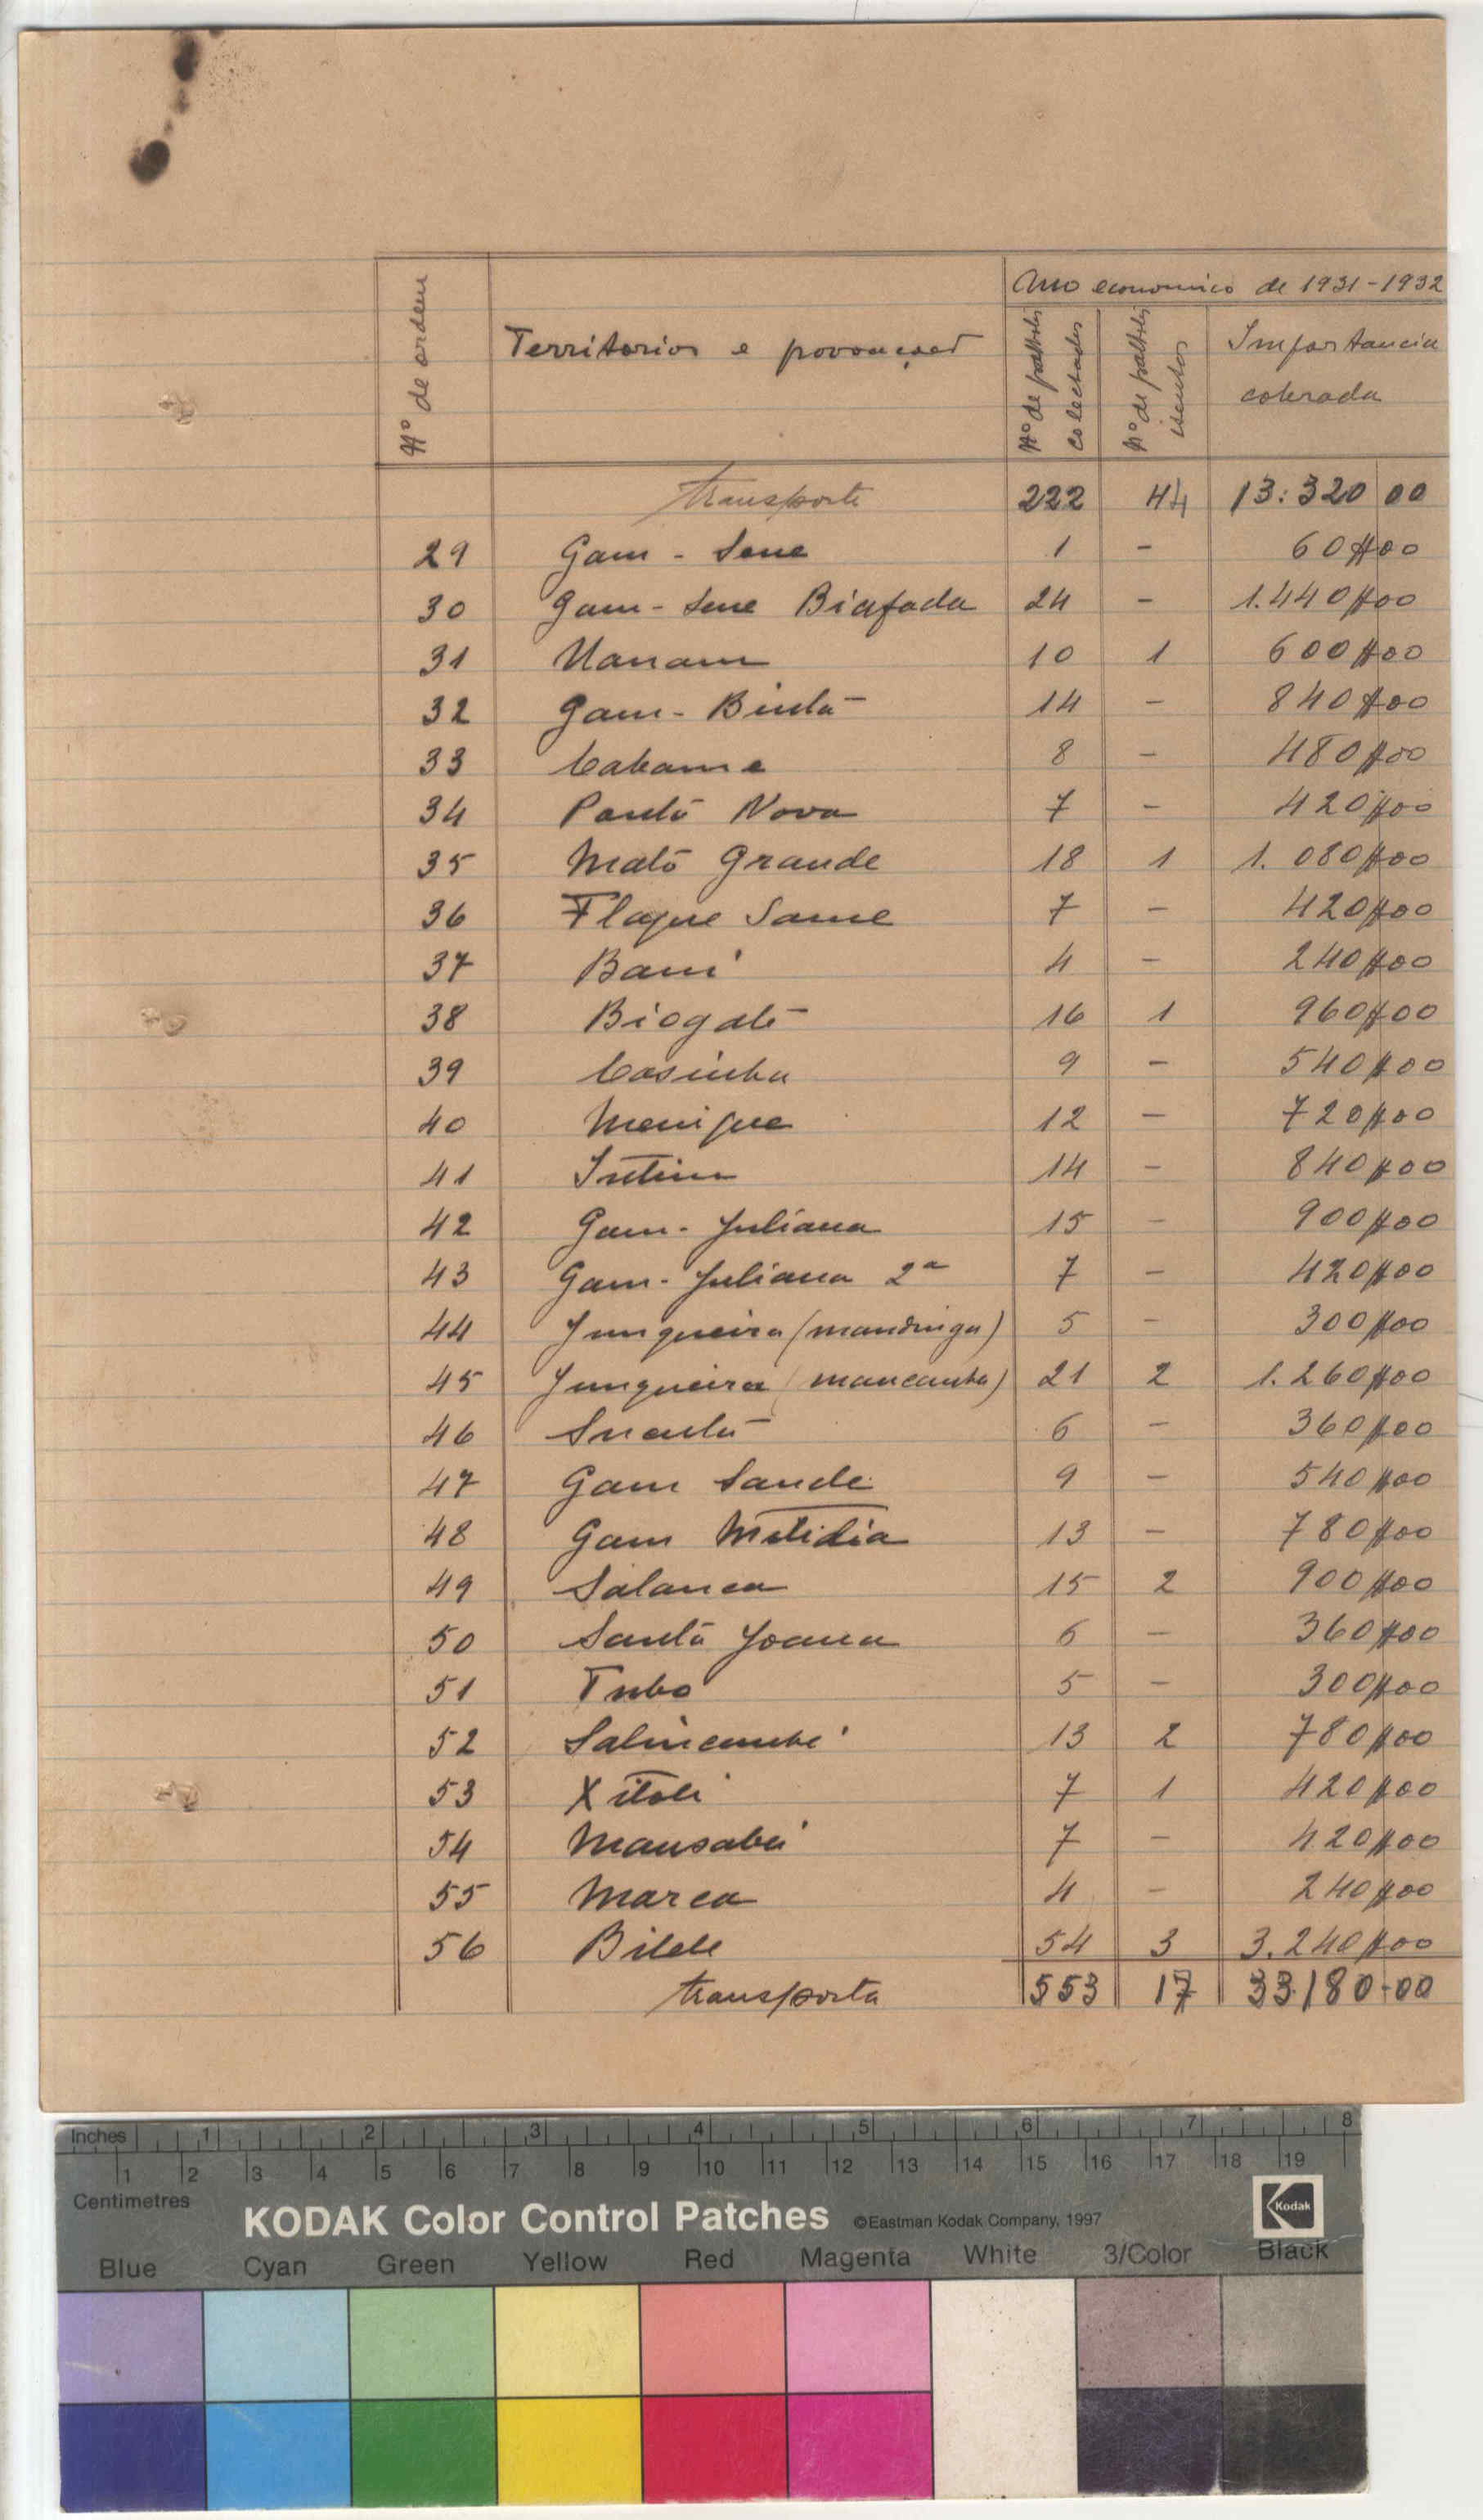 Ano economico de 1931-1932
Nº de ordem Territorios e povoações Nº de palhotas colectadas Nº de palhotas isentas Importancia cobrada
transporte 222 44 13:320 00
29 Gam - Sene 1 - 60$00
30 Gam - Sene Biafada 24 - 1.440$00
31 Nanam 10 1 600$00
32 Gam - Bintā 14 - 840$00
33 8 - 480$00
34 Nova 7 - 420$00
35 Matō Grande 18 1 1.080$00
36 Flaque Same 7 - 420$00
37 Bani 4 - 240$00
38 Biogatē 16 1 960$00
39 Casinha 9 - 540$00
40 Menique 12 - 720$00
41 Intim 14 - 840$00
42 Gam - Juliana 15 - 900$00
43 Gam - Juliana 2ª 7 - 420$00
44 Junqueira (mandinga) 5 - 300$00
45 Junqueira (mancanha) 21 2 1.260$00
46 6 - 360$00
47 Gam Sande 9 - 540$00
48 Gam 13 - 780$00
49 Salanca 15 2 900$00
50 Santā Joana 6 - 360$00
51 Tubo 5 - 300$00
52 13 2 780$00
53 Xitoli 7 1 420$00
54 Mansabá 7 - 420$00
55 Marca 4 - 240$00
56 54 3 3.240$00
transporta 553 17 33.180-00
Inches 1 2 3 4 5 6 7 8
1 2 3 4 5 6 7 8 9 10 11 12 13 14 15 16 17 18 19
Centimetres
KODAK Color Control Patches ©Eastman Kodak Company, 1997 Kodak
Blue Cyan Green Yellow Red Magenta White 3/Color Black